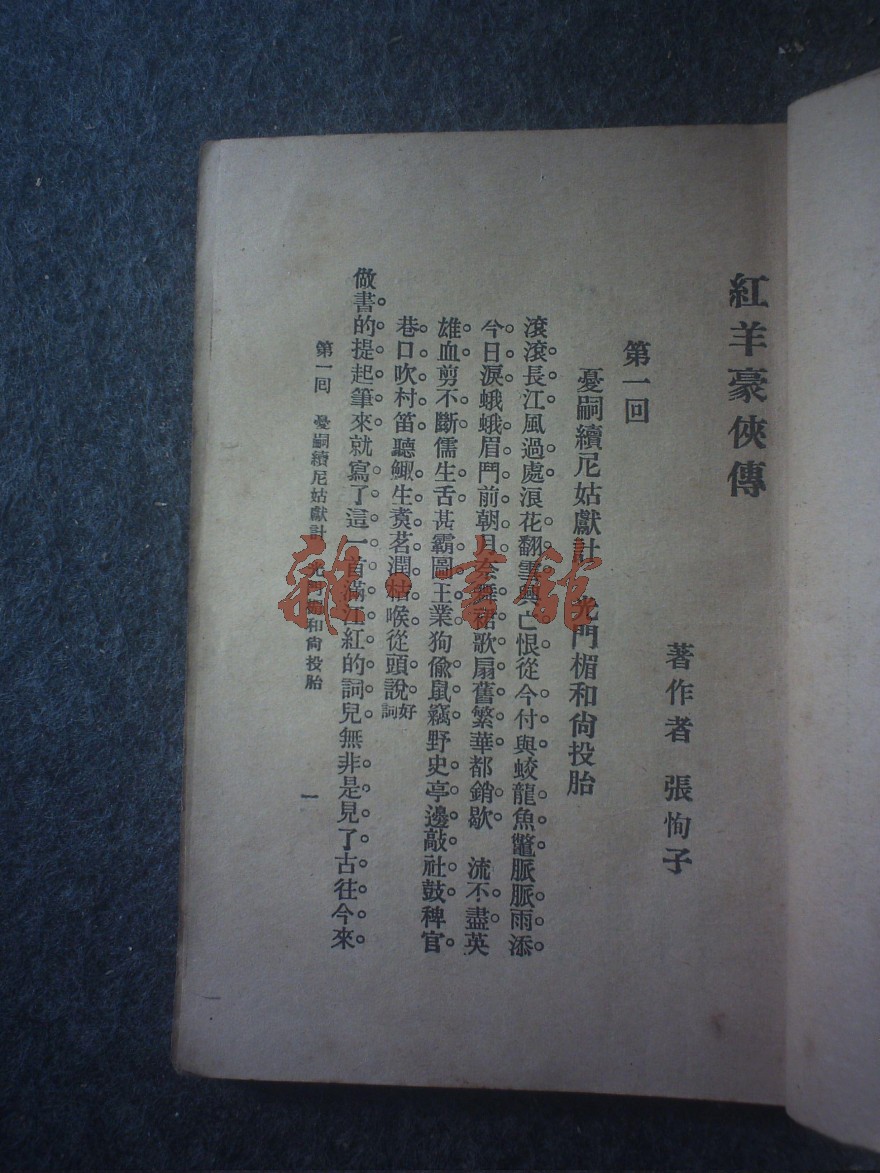 紅羊豪俠傳
著作者 張恂子
第一回
憂嗣續尼姑獻計 光門楣和尙投胎
滾滾長江風過處浪花翻雪興亡恨從今付與蛟龍魚鼈脈脈雨添
今日淚蛾蛾眉鬥前朝月奈舞裙歌扇舊繁華都銷歇 流不盡英
雄血剪不斷儒生舌甚霸圖王業狗偸鼠竊野史亭邊敲社鼓稗官
巷口吹村笛聽鯫生煑茗潤枯喉從頭說好詞
做書的提起筆來就寫了這一首滿江紅的詞兒無非是見了古往今來
第一回 憂嗣續尼姑獻計 光門楣和尙投胎
一
雜·書館